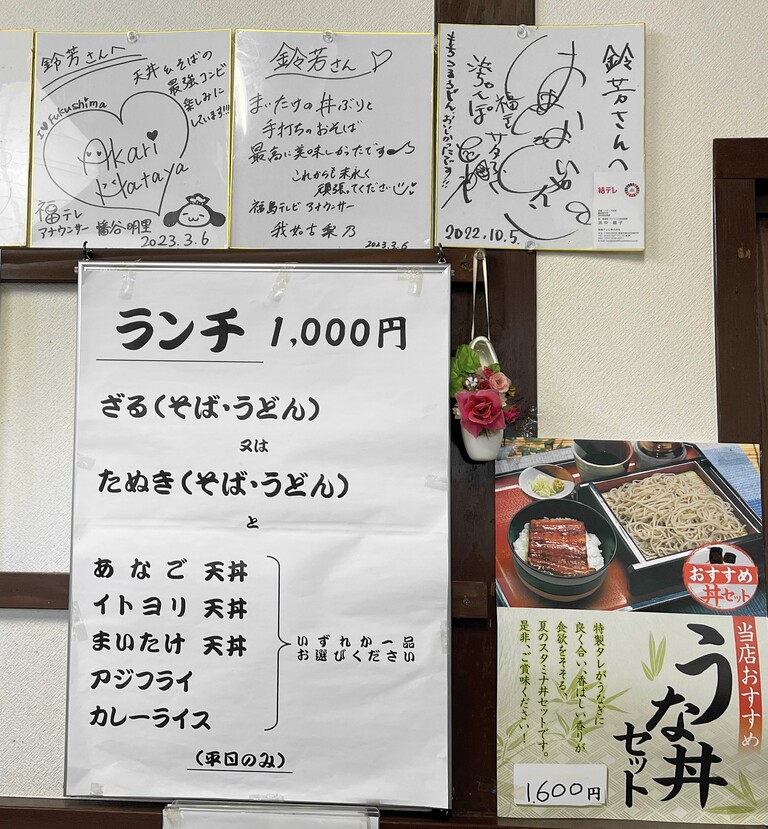 鈴芳さんへ
天丼&そばの
最強コンビ
楽しみに
しています!!!
I♥Fukushima
Akari
Hataya
福テレ
アナウンサー 幡谷明里
2023.3.6
鈴芳さん
まいたけの丼ぶりと
手打ちのおそば
最高に美味しかったです
これからも末永く
頑張ってください
福島テレビ アナウンサー
我妻古梨乃
2023.3.6
鈴芳さんへ
福テレ サタふく
もちつるうどんおいしかったです!!
2022.10.5.
福テレ
ランチ 1,000円
ざる(そば・うどん)
又は
たぬき(そば・うどん)
と
あなご 天丼
イトヨリ 天丼
まいたけ 天丼
アジフライ
カレーライス
いずれか一品
お選びください
(平日のみ)
おすすめ
丼セット
当店おすすめ
うな丼
セット
特製タレがうなぎに
良く合い、香ばしい香りが
食欲をそそる、
夏のスタミナ丼セットです。
是非、ご賞味ください!
1,600円